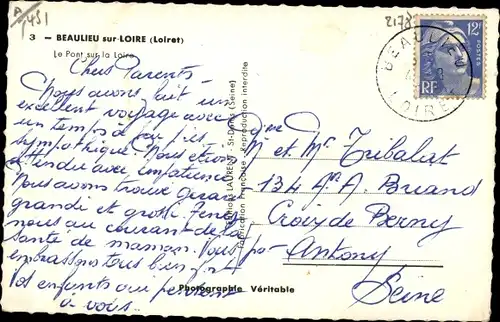 P/451
2178
3 — BEAULIEU sur LOIRE (Loiret)
Le Pont sur la Loire
12F
POSTES
RF
BEAULIEU
LOIRE
Chers Parents
Nous avons fait un
excellent voyage avec
un temps à peu près
sympathique. Nous étions
attendu avec impatience
Nous avons trouvé Gérard
grandi et grossi. Tenez
nous au courant de la
santé de maman. Nous
embrassons tous bien fort
Vos enfants qui pensent
à vous
LAURENT - St-Denis (Seine)
Fabrication Française - Reproduction interdite
Mr et Me Tribalat
134 Av. A. Briand
Croix de Berny
Antony
Seine
Photographie Véritable